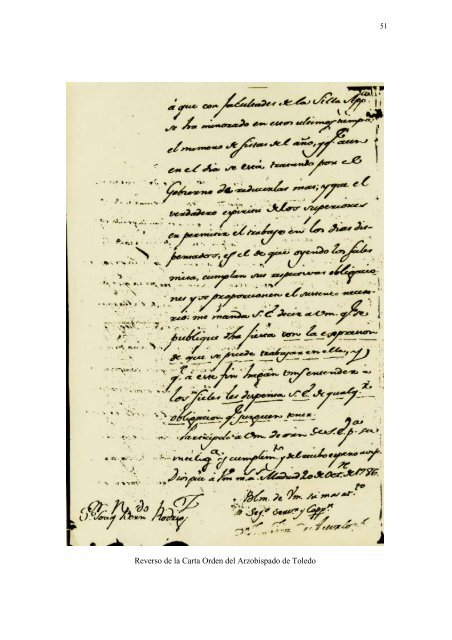 51
á que con facultades de la Silla App.ca
se ha minorado en estos ultimos tiempos
el numero de fiestas del año, y q.e aun
en el dia se está tratando por el
Gobierno de reducirlas mas, y que el
verdadero espiritu de los superiores
en permitir el trabajo en los dias dis-
pensados, es el de que oyendo los fieles
misa, cumplan sus respectivas obligacio-
nes y se proporcionen el sustento neces-
rio: me manda S.E. decir a Vm. q.e se
publique dha fiesta con la expresion
de que se puede trabajar en ella, y
q.e a este fin hagan Vms entender a
los fieles les dispensa S.E. de qualq.r
obligacion q.e juzguen tener.
Participolo a Vm de orn de S.E. p.a su
intelig.a y cumplim.to y del recibo espero aviso
Dios gue a Vm m.s a.s Madrid 20 de Oct.re de 1786.
Blm. de Vm su mas at.to
Seg.o Serv.r y Capp.n
Reverso de la Carta Orden del Arzobispado de Toledo